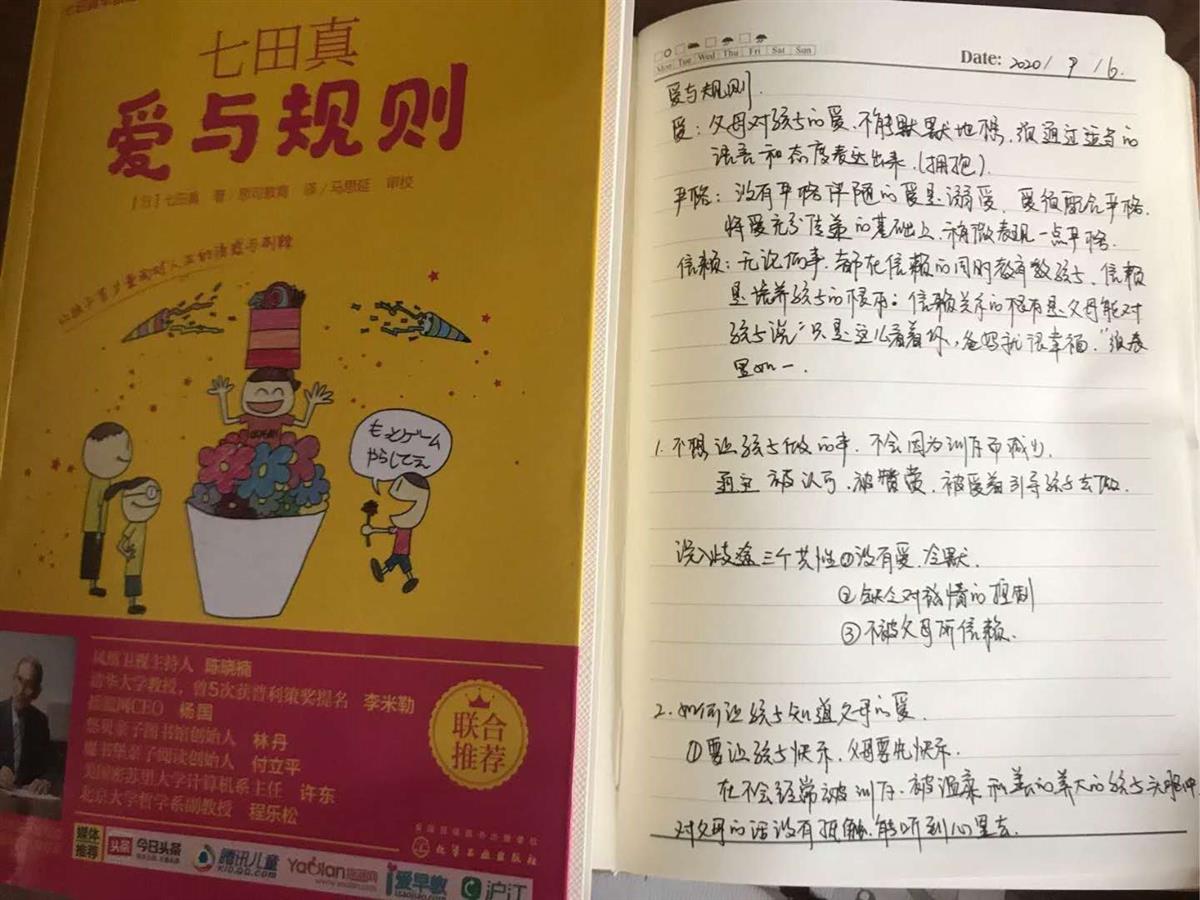 七田真
爱与规则
[日]七田真 著/思可教育 译/马思延 审校
もっとゲーム
やらしてえ
凤凰卫视主持人 陈晓楠
清华大学教授，曾5次获普利策奖提名 李米勒
杨国
悠贝亲子图书馆创始人 林丹
魔书堡亲子阅读创始人 付立平
美国密苏里大学计算机系主任 许东
北京大学哲学系副教授 程乐松
联合
推荐
媒体
推荐
头条 今日头条
腾讯儿童
KID.QQ.COM
YaoLan 摇篮网
www.yaolan.com
爱早教
沪江
化学工业出版社
Mon Tue Wed Thu Fri Sat Sun
Date: 2020/9/6.
爱与规则.
爱：父母对孩子的爱.不能默默地想，须通过适当的
语言和态度表达出来.(拥抱).
严格：没有严格伴随的爱是溺爱，爱须配合严格.
将爱充分传递的基础上，稍微表现一点严格.
信赖：无论何事.都在信赖的同时教育孩子，信赖
是培养孩子的根本；信赖关系的根本是父母能对
孩子说"只是这么看着你，爸妈就很幸福."须表
里如一.
1.不想让孩子做的事.不会因为训斥而减少，
而应被认可、被赞赏、被爱着引导孩子去做.
误入歧途三个共性①没有爱.冷默.
②缺乏对感情的控制
③不被父母所信赖.
2.如何让孩子知道父母的爱.
①要让孩子快乐，父母要先快乐.
在不会经常被训斥、被温柔和善的养大的孩子
对父母的话没有抵触.能听到心里去.